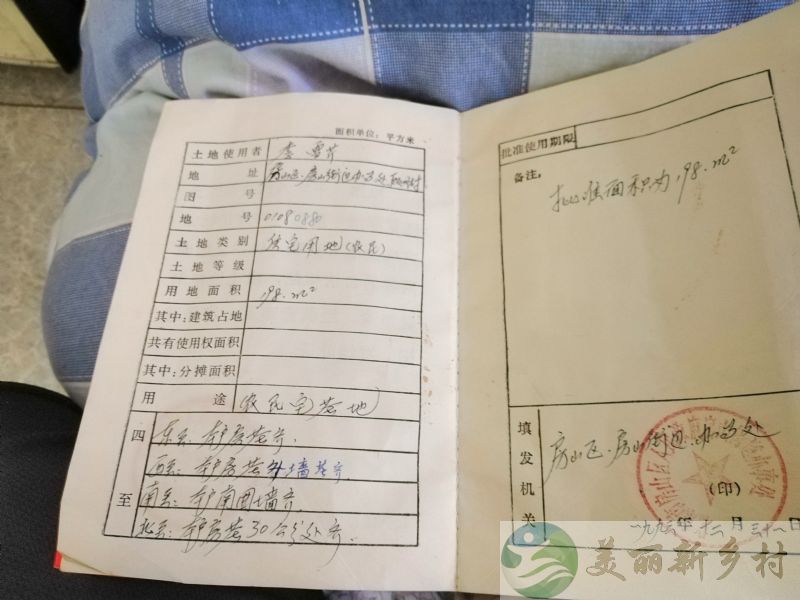 面积单位：平方米
土地使用者 李雪芹
地 址 房山区房山街道办事处
图 号
地 号 0108088
土地类别 住宅用地(农民)
土地等级
用地面积 198.m²
其中：建筑占地
共有使用权面积
其中：分摊面积
用 途 农民宅基地
四至
东至：本户房基齐.
西至：本户房基外墙基齐.
南至：本户南围墙齐.
北至：本户房基30公分处齐.
批准使用期限
备注：
批准面积为198.m²
填发机关
房山区房山街道办事处
(印)
一九九三年十二月三十一日
美丽新乡村